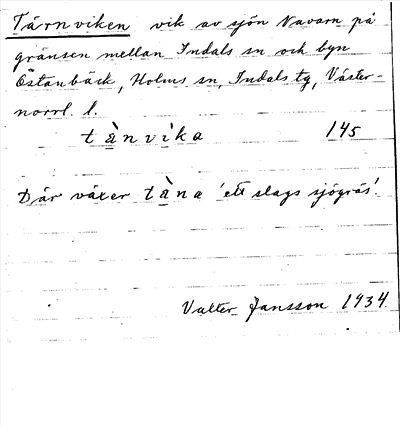 Tärnviken vik av sjön Navarn på
gränsen mellan Indals sn och byn
Östanbäck, Holms sn, Indals tg, Väster-
norrl. l.
tä̀nvìka 145
Där växer tä̀na 'ett slags sjögräs'.
Valter Jansson 1934